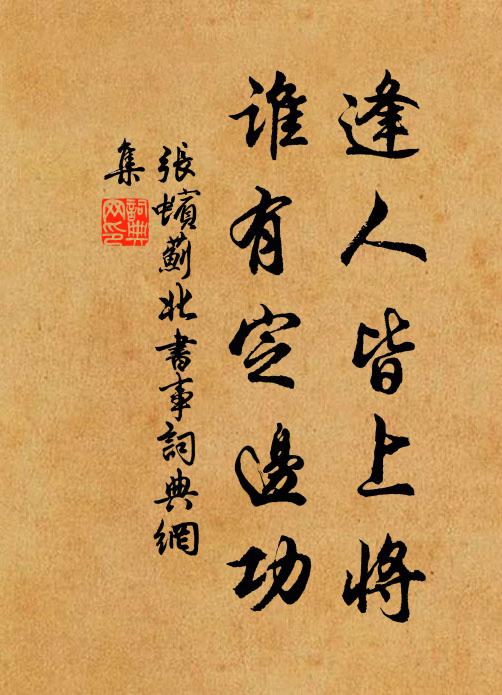 逢人皆上將
誰有定邊功
張蠙薊北書事詞典網
集
詞典
网印